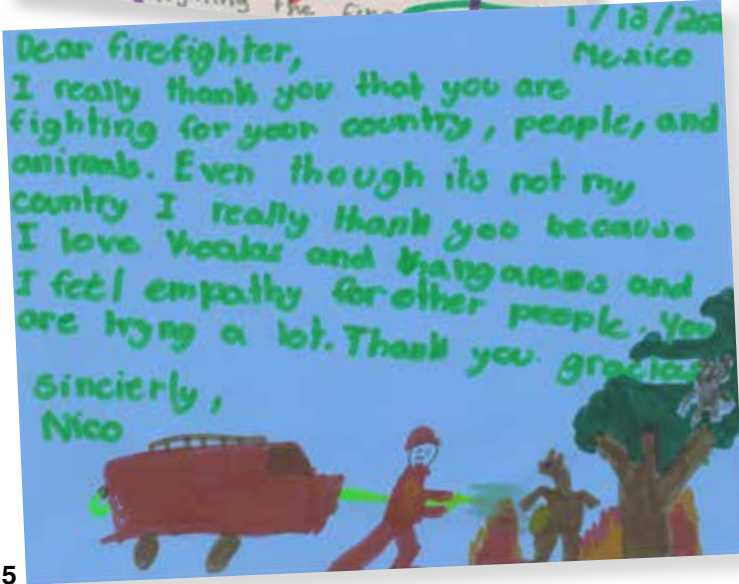 the
1/13/202
Mexico
Dear firefighter,
I really thank you that you are
fighting for your country, people, and
animals. Even though its not my
country I really thank you because
I love Koalas and Kangaroos and
I feel empathy for other people. You
are tryng a lot. Thank you gracias
sincierly,
Nico
5